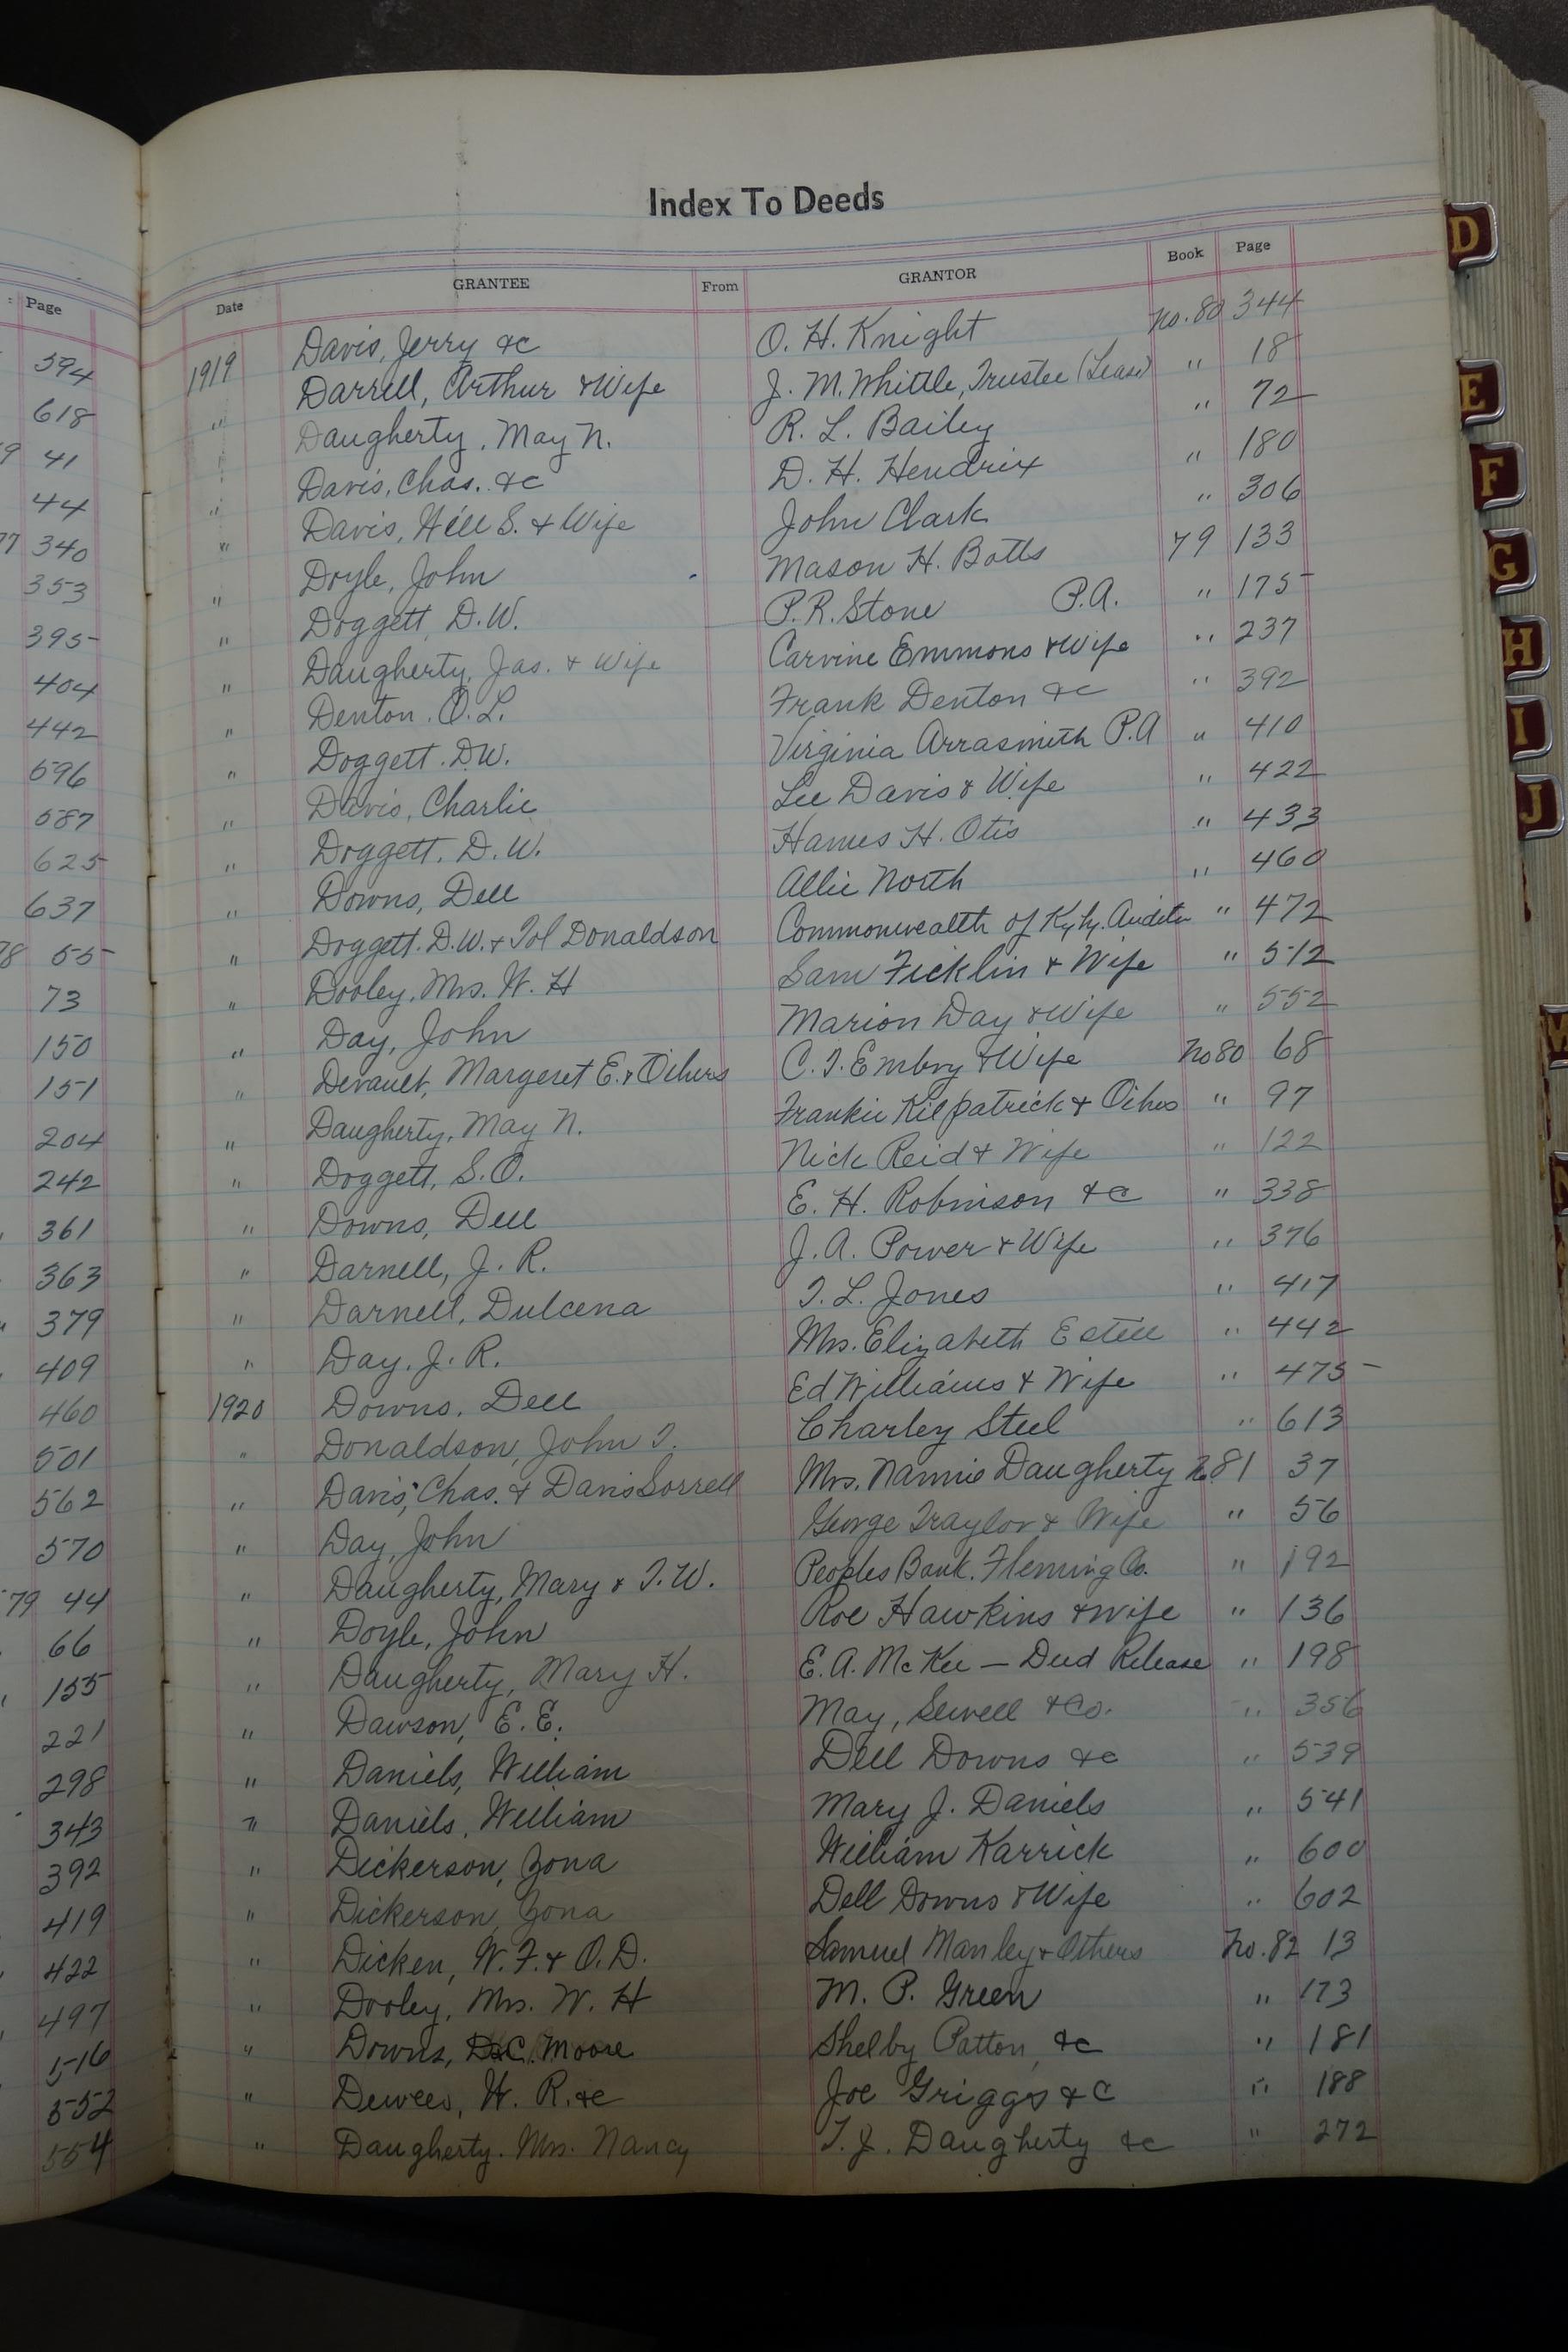 Index To Deeds
Date GRANTEE From GRANTOR Book Page
1919 Davis, Jerry &c O. H. Knight No. 80 344
" Darrell, Arthur & Wife J. M. Whittle, Trustee (Lease) " 18
Daugherty, May N. R. L. Bailey " 72
" Davis, Chas. &c D. H. Hendrix " 180
" Davis, Will S. & Wife John Clark " 306
" Doyle, John Mason H. Botts 79 133
" Doggett, D.W. P.R. Stone P.A. " 175
" Daugherty, Jas. & Wife Carvine Emmons & Wife " 237
" Denton, O.L. Frank Denton &c " 392
" Doggett. D.W. Virginia Arrasmith P.A " 410
" Davis, Charlie Lee Davis & Wife " 422
" Doggett, D.W. Hames H. Otis " 433
" Downs, Dell Allie North " 460
" Doggett. D.W. & Donaldson Commonwealth of Ky. " 472
" Dooley, Mrs. W. H Sam Ficklin & Wife " 512
" Day, John Marion Day & Wife " 552
" Devault, Margeret E. & Others C. T. Embry & Wife No 80 68
" Daugherty, May N. Frankie Kilpatrick & Others " 97
" Doggett, S.O. Nick Reid & Wife " 122
" Downs, Dell E. H. Robinson &c " 338
" Darnell, J. R. J. A. Power & Wife " 376
" Darnell, Dulcena T. L. Jones " 417
" Day. J. R. Mrs. Elizabeth Estill " 442
1920 Downs, Dell Ed Williams & Wife " 475
" Donaldson, John T. Charley Steel " 613
" Davis, Chas. & Davis Sorrell Mrs. Nannie Daugherty No. 81 37
" Day, John George Traylor & Wife " 56
" Daugherty, Mary & T.W. Peoples Bank. Fleming Co. " 192
" Doyle, John Roe Hawkins & Wife " 136
" Daugherty, Mary H. E. A. McKee — Deed Release " 198
" Dawson, E. E. May, Sewell & Co. " 356
" Daniels, William Dell Downs &c " 539
" Daniels, William Mary J. Daniels " 541
" Dickerson, Zona William Karrick " 600
" Dickerson, Zona Dell Downs & Wife " 602
" Dicken, W. F. & O. D. Samuel Manley & Others No. 82 13
" Dooley, Mrs. W. H M. P. Green " 173
" Downs, Moore Shelby Patton, &c " 181
" Dewees, W. R. &c Joe Griggs &c " 188
" Daugherty. Mrs. Nancy T. J. Daugherty &c " 272
Page
594
618
41
44
340
353
395
404
442
596
587
625
637
78 55
73
150
151
204
242
361
363
379
409
460
501
562
570
79 44
66
155
221
298
343
392
419
422
497
516
552
554
D
E
F
G
H
I
J